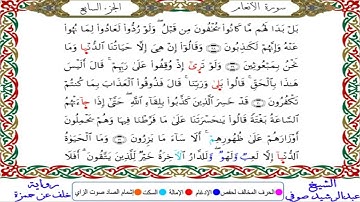 سورة الأنعام
الجزء السابع
بَلْ بَدَا لَهُم مَّا كَانُوا۟ يُخْفُونَ مِن قَبْلُ ۖ وَلَوْ رُدُّوا۟ لَعَادُوا۟ لِمَا نُهُوا۟
عَنْهُ وَإِنَّهُمْ لَكَٰذِبُونَ وَقَالُوٓا۟ إِنْ هِىَ إِلَّا حَيَاتُنَا ٱلدُّنْيَا وَمَا
نَحْنُ بِمَبْعُوثِينَ وَلَوْ تَرَىٰٓ إِذْ وُقِفُوا۟ عَلَىٰ رَبِّهِمْ ۚ قَالَ أَلَيْسَ
هَٰذَا بِٱلْحَقِّ ۚ قَالُوا۟ بَلَىٰ وَرَبِّنَا ۚ قَالَ فَذُوقُوا۟ ٱلْعَذَابَ بِمَا كُنتُمْ
تَكْفُرُونَ قَدْ خَسِرَ ٱلَّذِينَ كَذَّبُوا۟ بِلِقَآءِ ٱللَّهِ ۖ حَتَّىٰٓ إِذَا جَآءَتْهُمُ
ٱلسَّاعَةُ بَغْتَةً قَالُوا۟ يَٰحَسْرَتَنَا عَلَىٰ مَا فَرَّطْنَا فِيهَا وَهُمْ يَحْمِلُونَ
أَوْزَارَهُمْ عَلَىٰ ظُهُورِهِمْ ۚ أَلَا سَآءَ مَا يَزِرُونَ وَمَا ٱلْحَيَوٰةُ
ٱلدُّنْيَآ إِلَّا لَعِبٌ وَلَهْوٌ ۖ وَلَلدَّارُ ٱلْأَخِرَةُ خَيْرٌ لِّلَّذِينَ يَتَّقُونَ ۗ أَفَلَا
الشيخ
عبدالرشيد صوفي
الحرف المخالف لحفص
الإدغام
الإمالة
السكت
إشمام الصاد صوت الزاي
رواية
خلف عن حمزة